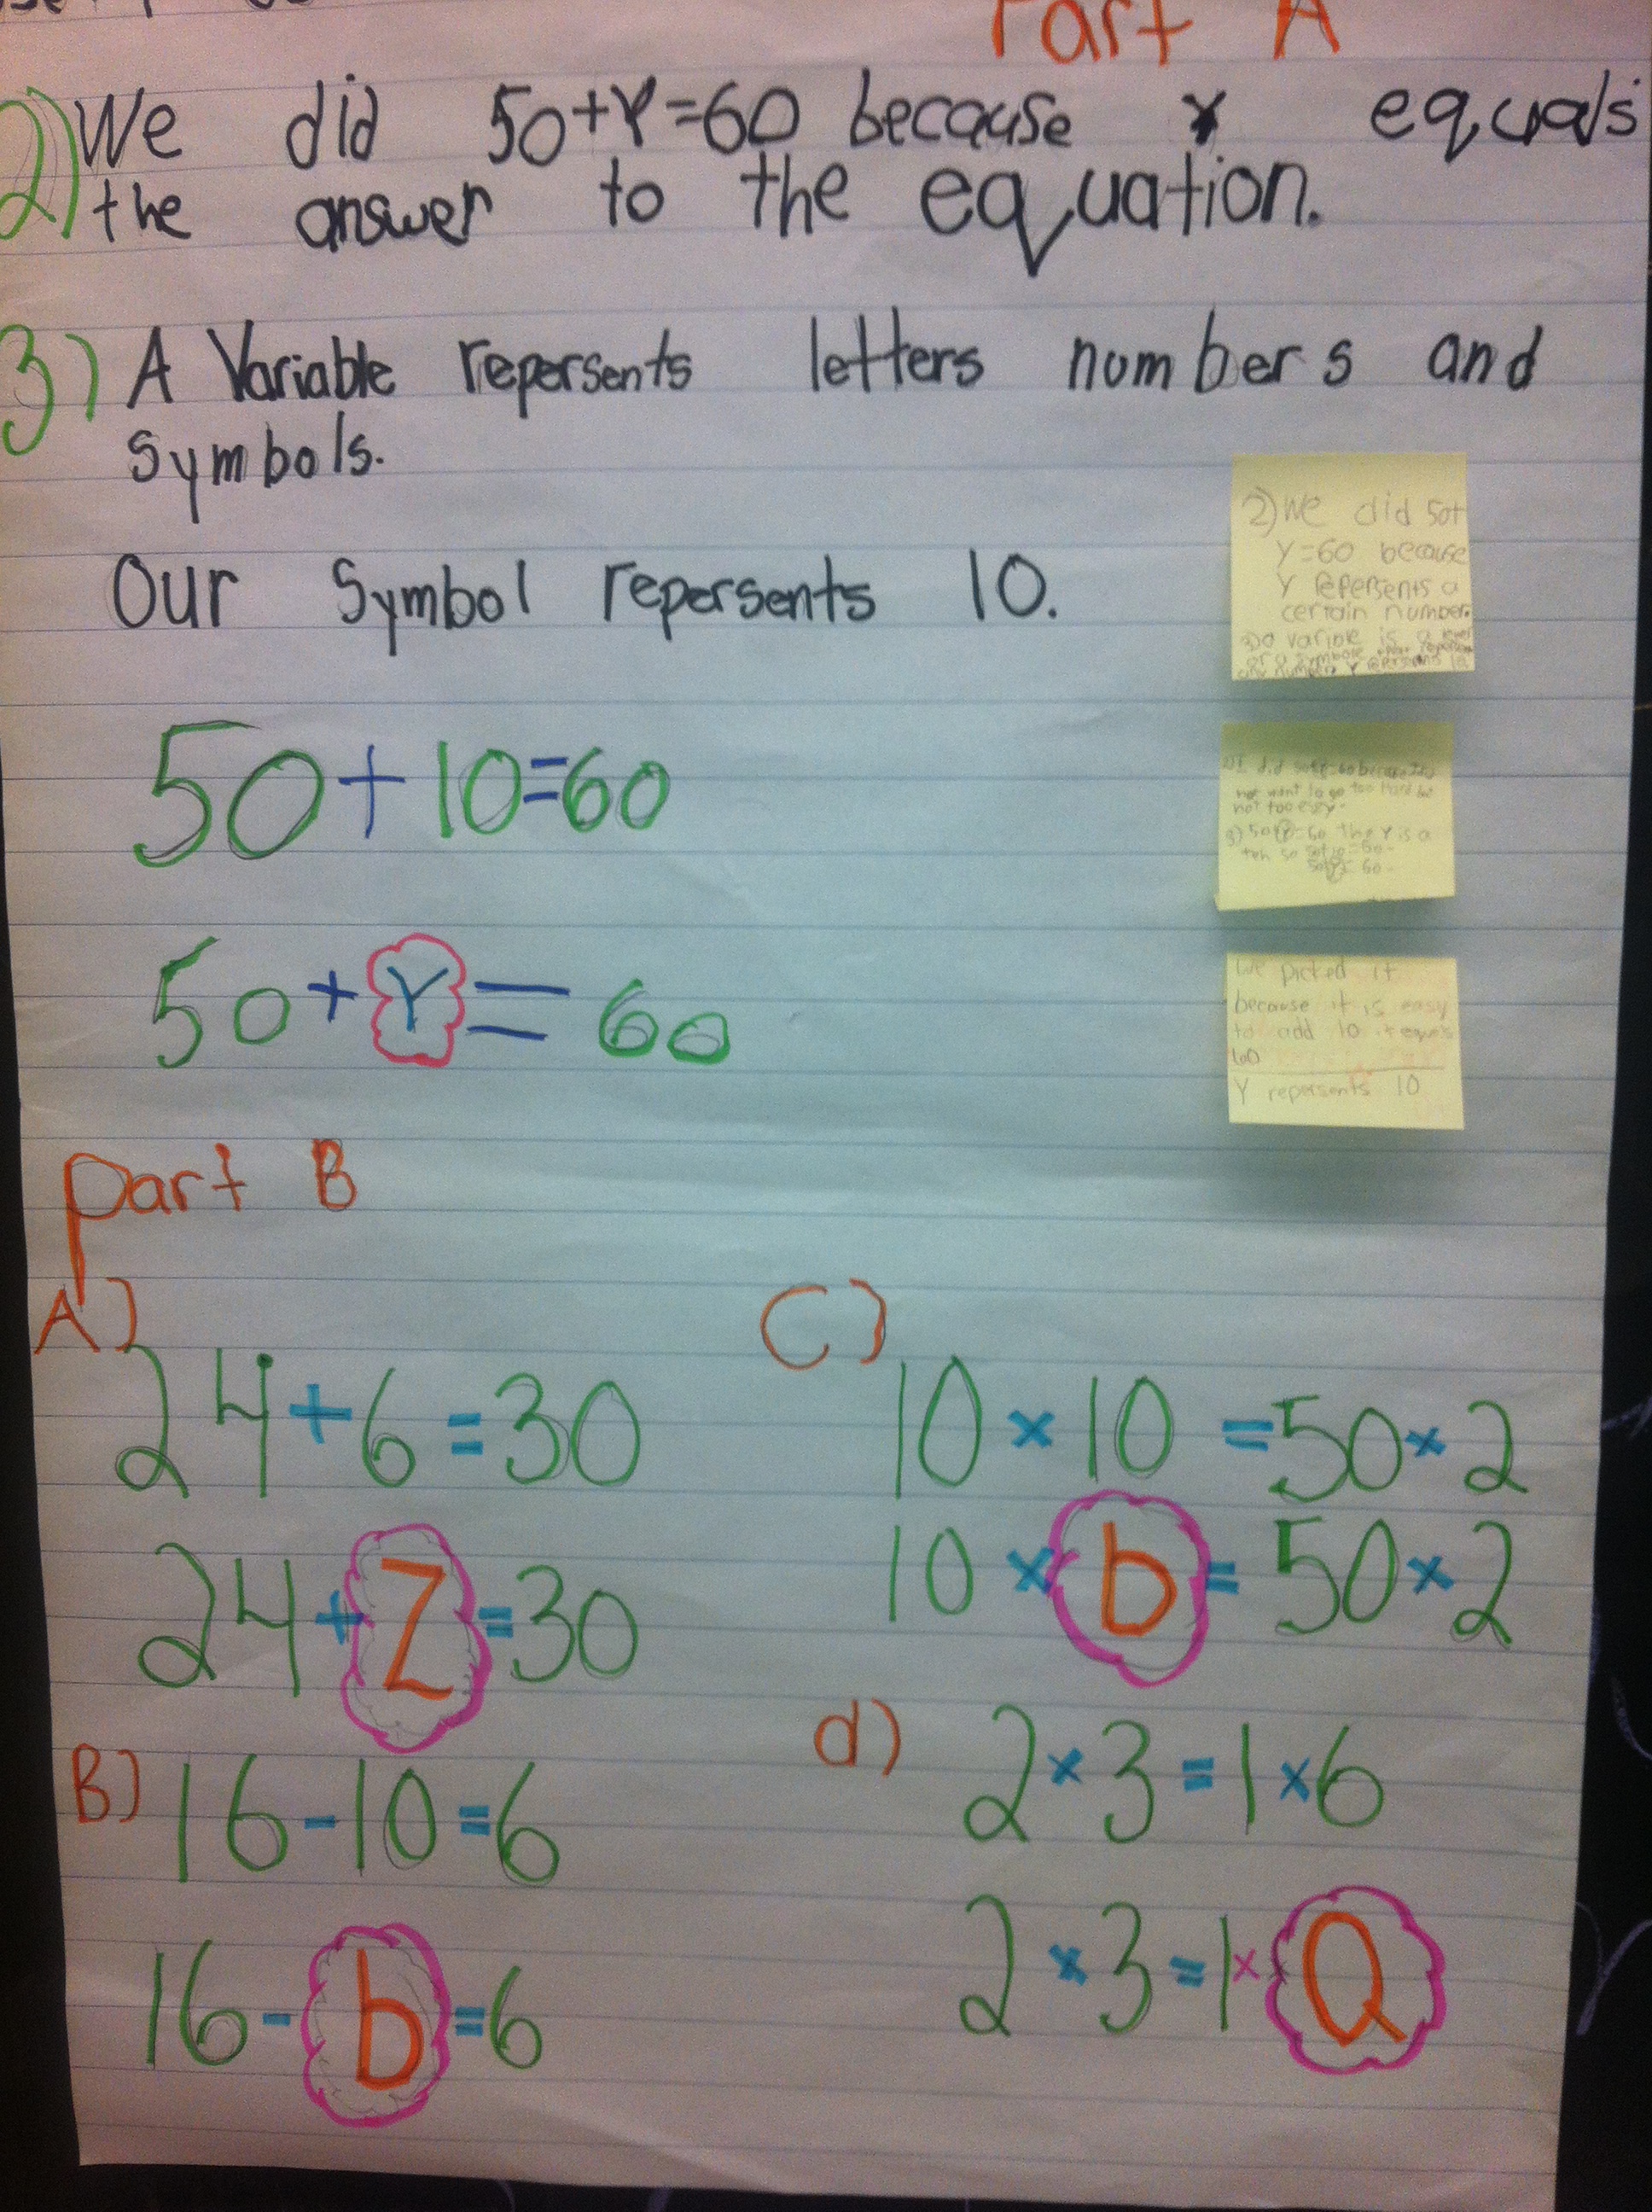 Part A
2) We did 50+Y=60 because Y equals
the answer to the equation.
3) A Variable repersents letters numbers and
Symbols.
Our Symbol repersents 10.
2) We did 50+
Y=60 because
Y repersents a
certain number.
varible is a
or a symbole
any number Y repersents 10
50+10=60
I did
not want to go too hard but
not too easy.
3) 50+Y=60 the Y is a
ten so 50+10=60
50+Y=60
50+Y=60
We picked it
because it is easy
to add 10 it equals
60
Y repersents 10
Part B
A)
24+6=30
24+Z=30
B) 16-10=6
16-b=6
C)
10×10=50×2
10×b=50×2
d) 2×3=1×6
2×3=1×Q